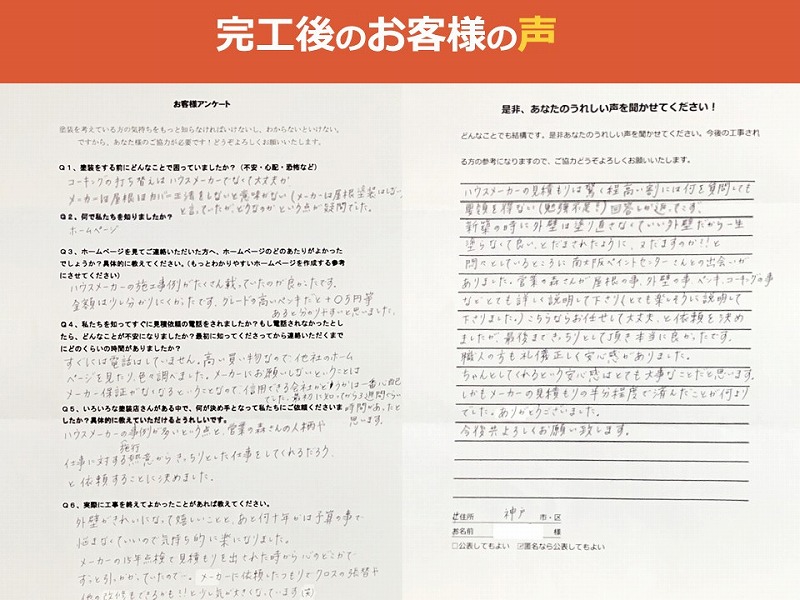 完工後のお客様の声
お客様アンケート
塗装を考えている方の気持ちをもっと知らなければいけないし、わからないといけない。
ですから、あなた様のご協力が必要です!どうぞよろしくお願いいたします。
Q1、塗装をする前にどんなことで困っていましたか?(不安・心配・恐怖など)
コーキングの打ち替えはハウスメーカーでなくて大丈夫か
メーカーは屋根はカバー工法をしないと意味がない(メーカーは屋根塗装はしない
と言っていたが、どうなのかという点が疑問でした。
Q2、何で私たちを知りましたか?
ホームページ
Q3、ホームページを見てご連絡いただいた方へ、ホームページのどのあたりがよかった
でしょうか?具体的に教えてください。(もっとわかりやすいホームページを作成する参考
にさせてください)
ハウスメーカーの施工事例がたくさん載っていたのが良かったです。
金額は少し分かりにくかったです、グレードの高いペンキだと+〇万円等
あると分かりやすいと思いました。
Q4、私たちを知ってすぐに見積依頼の電話をされましたか?もし電話されなかったとし
たら、どんなことが不安になりましたか?最初に知ってくださってから連絡いただくまで
にどのくらいの時間がありましたか?
すぐには電話はしていません。高い買い物なので他社のホーム
ページを見たり、色々調べました。メーカーにお願いしないということは
メーカー保証がなくなるということなので、信用できる会社かどうかは一番心配
でした。最初に知ってから3週間ぐらい
時間があったと
思います。
Q5、いろいろな塗装店さんがある中で、何が決め手となって私たちにご依頼くださいま
したか?具体的に教えていただけるとうれしいです。
ハウスメーカーの事例が多いという点と、営業の森さんの人柄や
施行
仕事に対する熱意からきっちりとした仕事をしてくれるだろう、
と依頼することに決めました。
Q6、実際に工事を終えてよかったことがあれば教えてください。
外壁がきれいになって嬉しいことと、あと何十年かは予算の事で
悩まなくていいので気持ち的に楽になりました。
メーカーの15年点検で見積もりを出された時から心のどこかで
ずっと引っかかっていたので…。メーカーに依頼したつもりでクロスの張替や
他の改修もできるかも!!と少し気が大きくなっています(笑)
是非、あなたのうれしい声を聞かせてください!
どんなことでも結構です。是非あなたのうれしい声を聞かせてください。今後の工事され
る方の参考になりますので、ご協力どうぞよろしくお願いいたします。
ハウスメーカーの見積もりは驚く程高い割には何を質問しても
要領を得ない(勉強不足!)回答しか返ってこず、
新築の時に外壁は塗り直さなくていい外壁だから一生
塗らなくて良い、とだまされたように、またますのか!!と
悶々としているところに南大阪ペイントセンターさんとの出会いが
ありました。営業の森さんが屋根の事、外壁の事、ペンキ、コーキングの事
などとても詳しく説明して下さり(とても楽しそうに説明して
下さりました。)こちらならお任せして大丈夫、と依頼を決め
ましたが、最後まできっちりとして頂き本当に良かったです。
職人の方も礼儀正しく安心感がありました。
ちゃんとしてくれるという安心感はとても大事なことだと思います。
しかもメーカーの見積もりの半分程度で済んだことが何より
でした。ありがとうございました。
今後共よろしくお願い致します。
ご住所 神戸 市・区
お名前 様
□公表してもよい ☑匿名なら公表してもよい